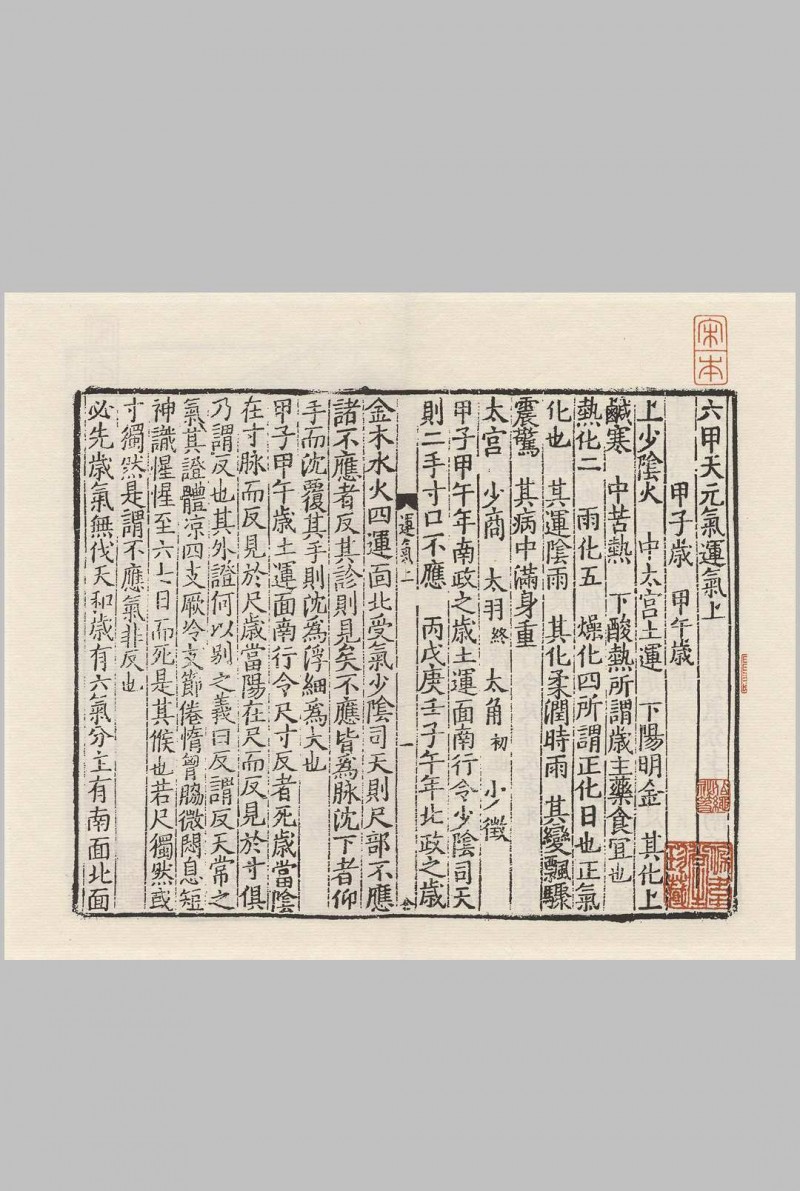 宋本
六甲天元氣運氣上
甲子歲　甲午歲
上少陰火　中太宮土運　下陽明金　其化上
鹹寒　中苦熱　下酸熱所謂歲主藥食宜也
熱化二　雨化五　燥化四所謂正化日也正氣
化也　其運陰雨　其化柔潤時雨　其變飄驟
震驚　其病中滿身重
太宮　少商　太羽終　太角初　少徵
甲子甲午年南政之歲土運面南行令少陰司天
則二手寸口不應　丙戊庚壬子午年北政之歲
運氣上　一
金木水火四運面北受氣少陰司天則尺部不應
諸不應者反其診則見矣不應皆為脉沈下者仰
手而沈覆其手則沈為浮細為大也
甲子甲午歲土運面南行令尺寸反者死歲當陰
在寸脉而反見於尺歲當陽在尺而反見於寸俱
乃謂反也其外證何以别之義曰反謂反天常之
氣其證體凉四支厥冷支節倦惰胷脇微悶息短
神識惺惺至六七日而死是其候也若尺獨然或
寸獨然是謂不應氣非反也
必先歲氣無伐天和歲有六氣分主有南面北面